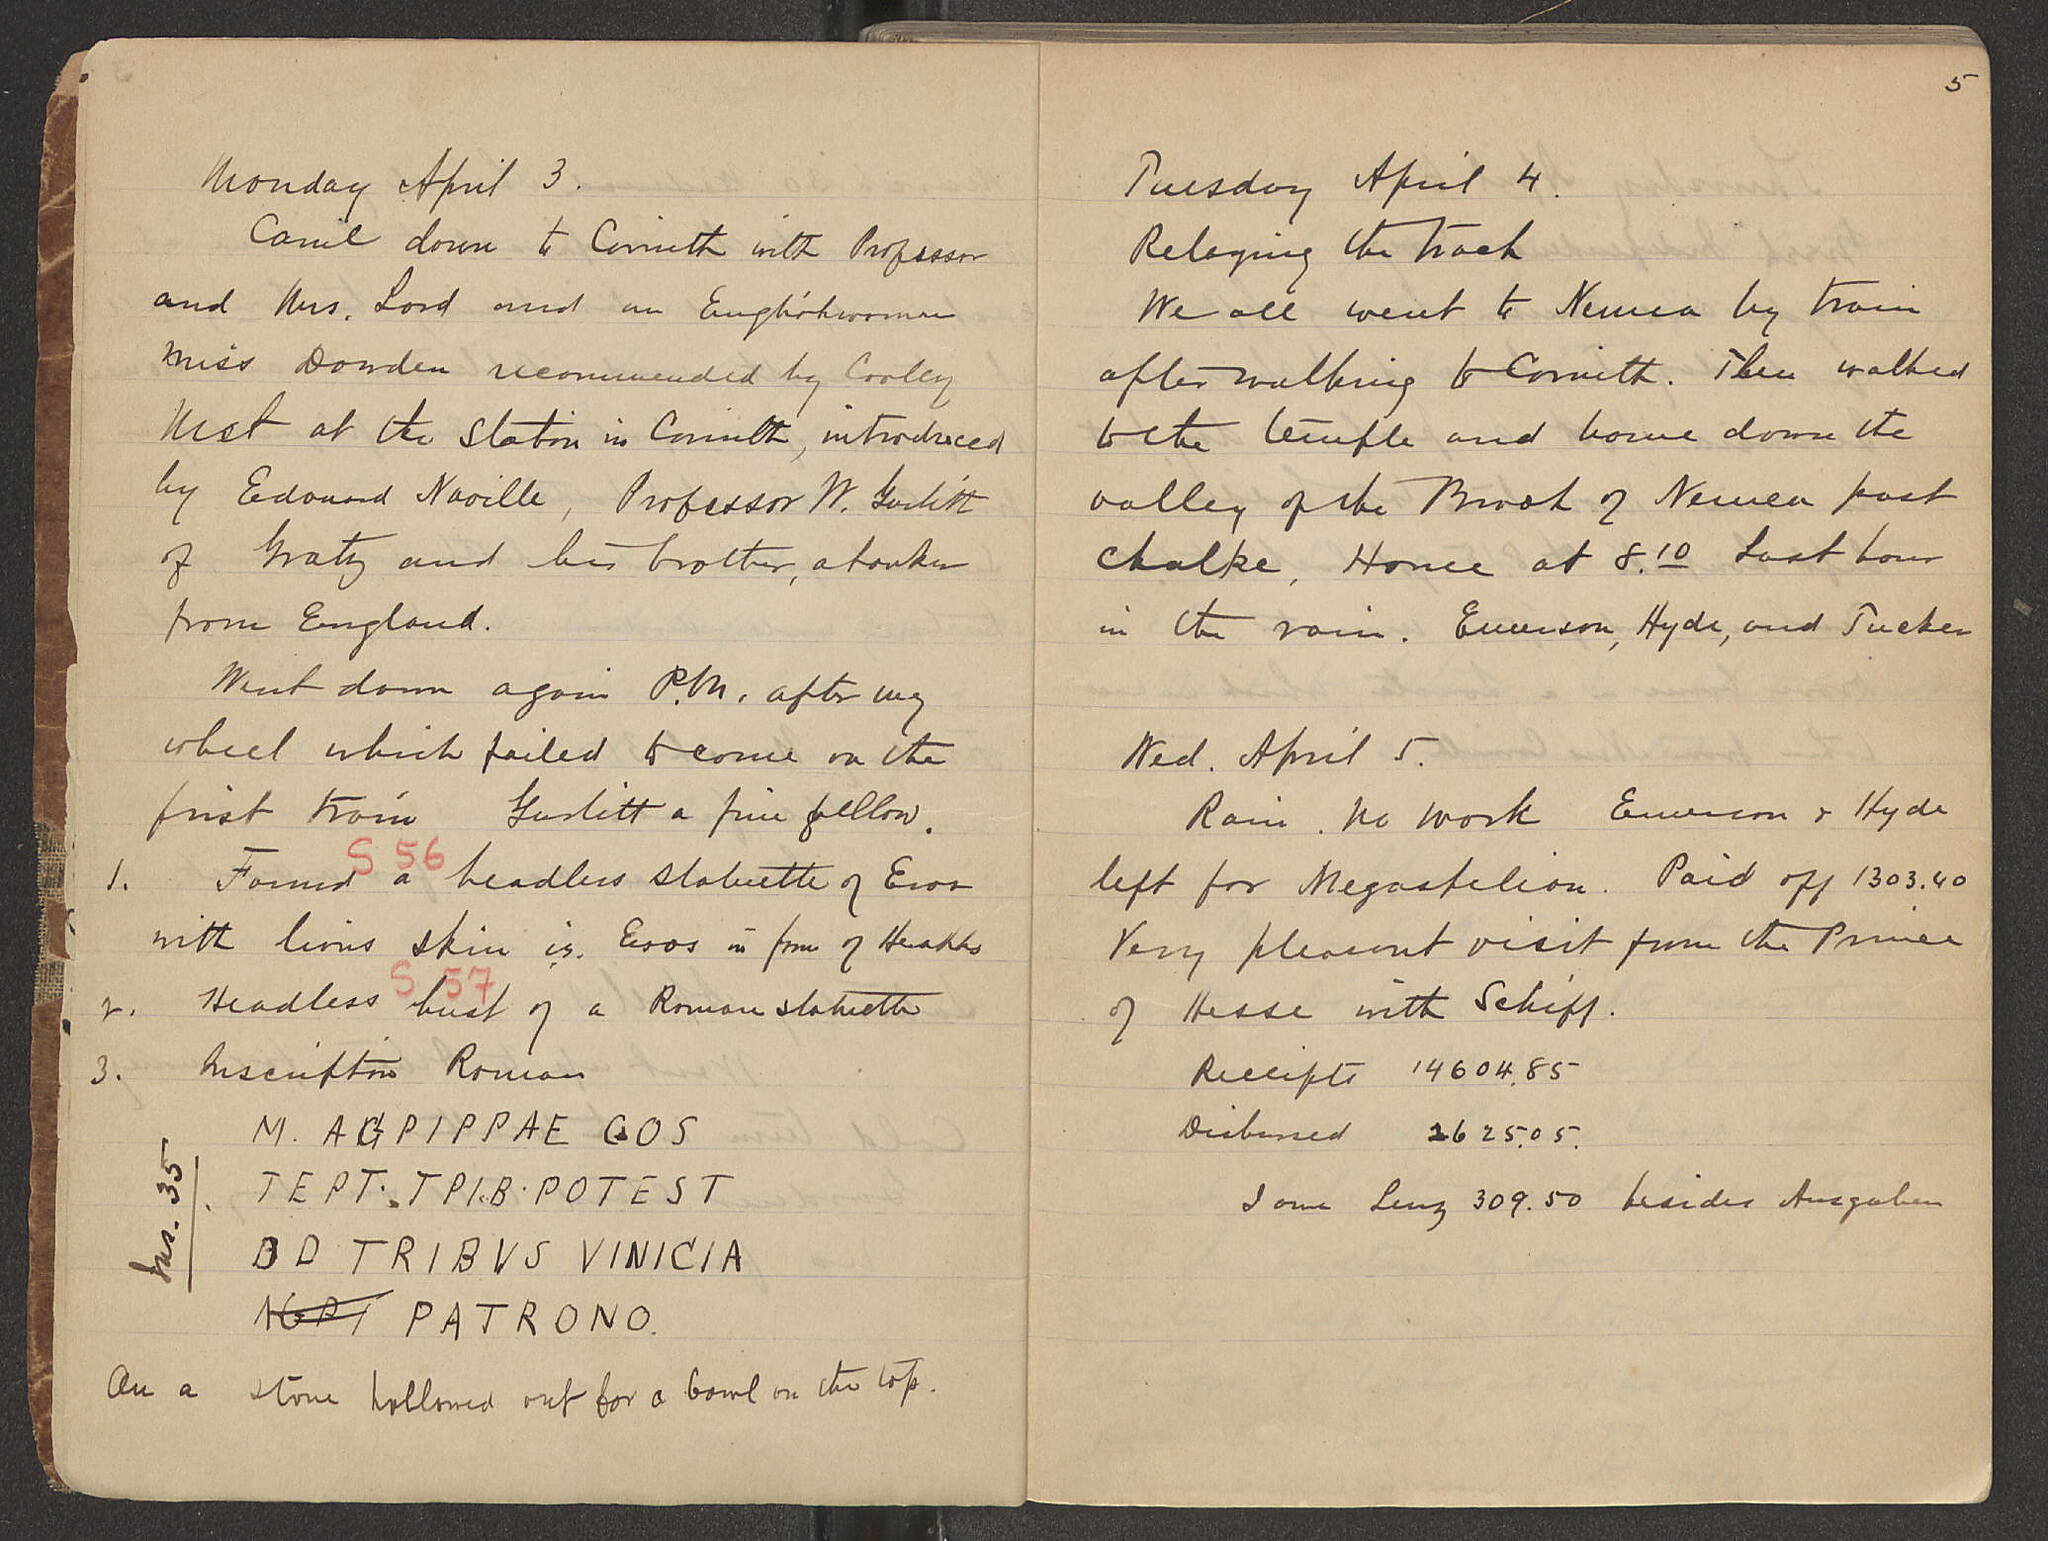 Monday April 3.
Came down to Corinth with Professor
and Mrs. Lord and an Englishwoman
Miss Dowden recommended by Cooley
Met at the Station in Corinth, introduced
by Edouard Naville, Professor W. Gurlitt
of Gratz and his brother, a banker
from England.
Went down again P.M. after my
wheel which failed to come on the
first train Gurlitt a fine fellow.
S 56
1. Found a headless statuette of Eros
with lions skin i.e. Eros in form of Herakles
S 57
2. Headless bust of a Roman statuette
3. Inscription Roman
M. AGPIPPAE COS
TEPT. TPI.B. POTEST
Ins. 35
DD TRIBVS VINICIA
AGPI PATRONO.
On a stone hollowed out for a bowl on the top.
5
Tuesday April 4.
Relaying the track
We all went to Nemea by train
after walking to Corinth. Then walked
to the temple and home down the
valley of the Brook of Nemea past
Chalke, Home at 8.10 Last hour
in the rain. Emerson, Hyde, and Tucker
Wed. April 5.
Rain. No work Emerson & Hyde
left for Megaspelion. Paid off 1303.40
Very pleasant visit from the Prince
of Hesse with Schiff.
Receipts 14604.85
Disbursed 2625.05.
I owe Lenz 309.50 besides Ausgaben